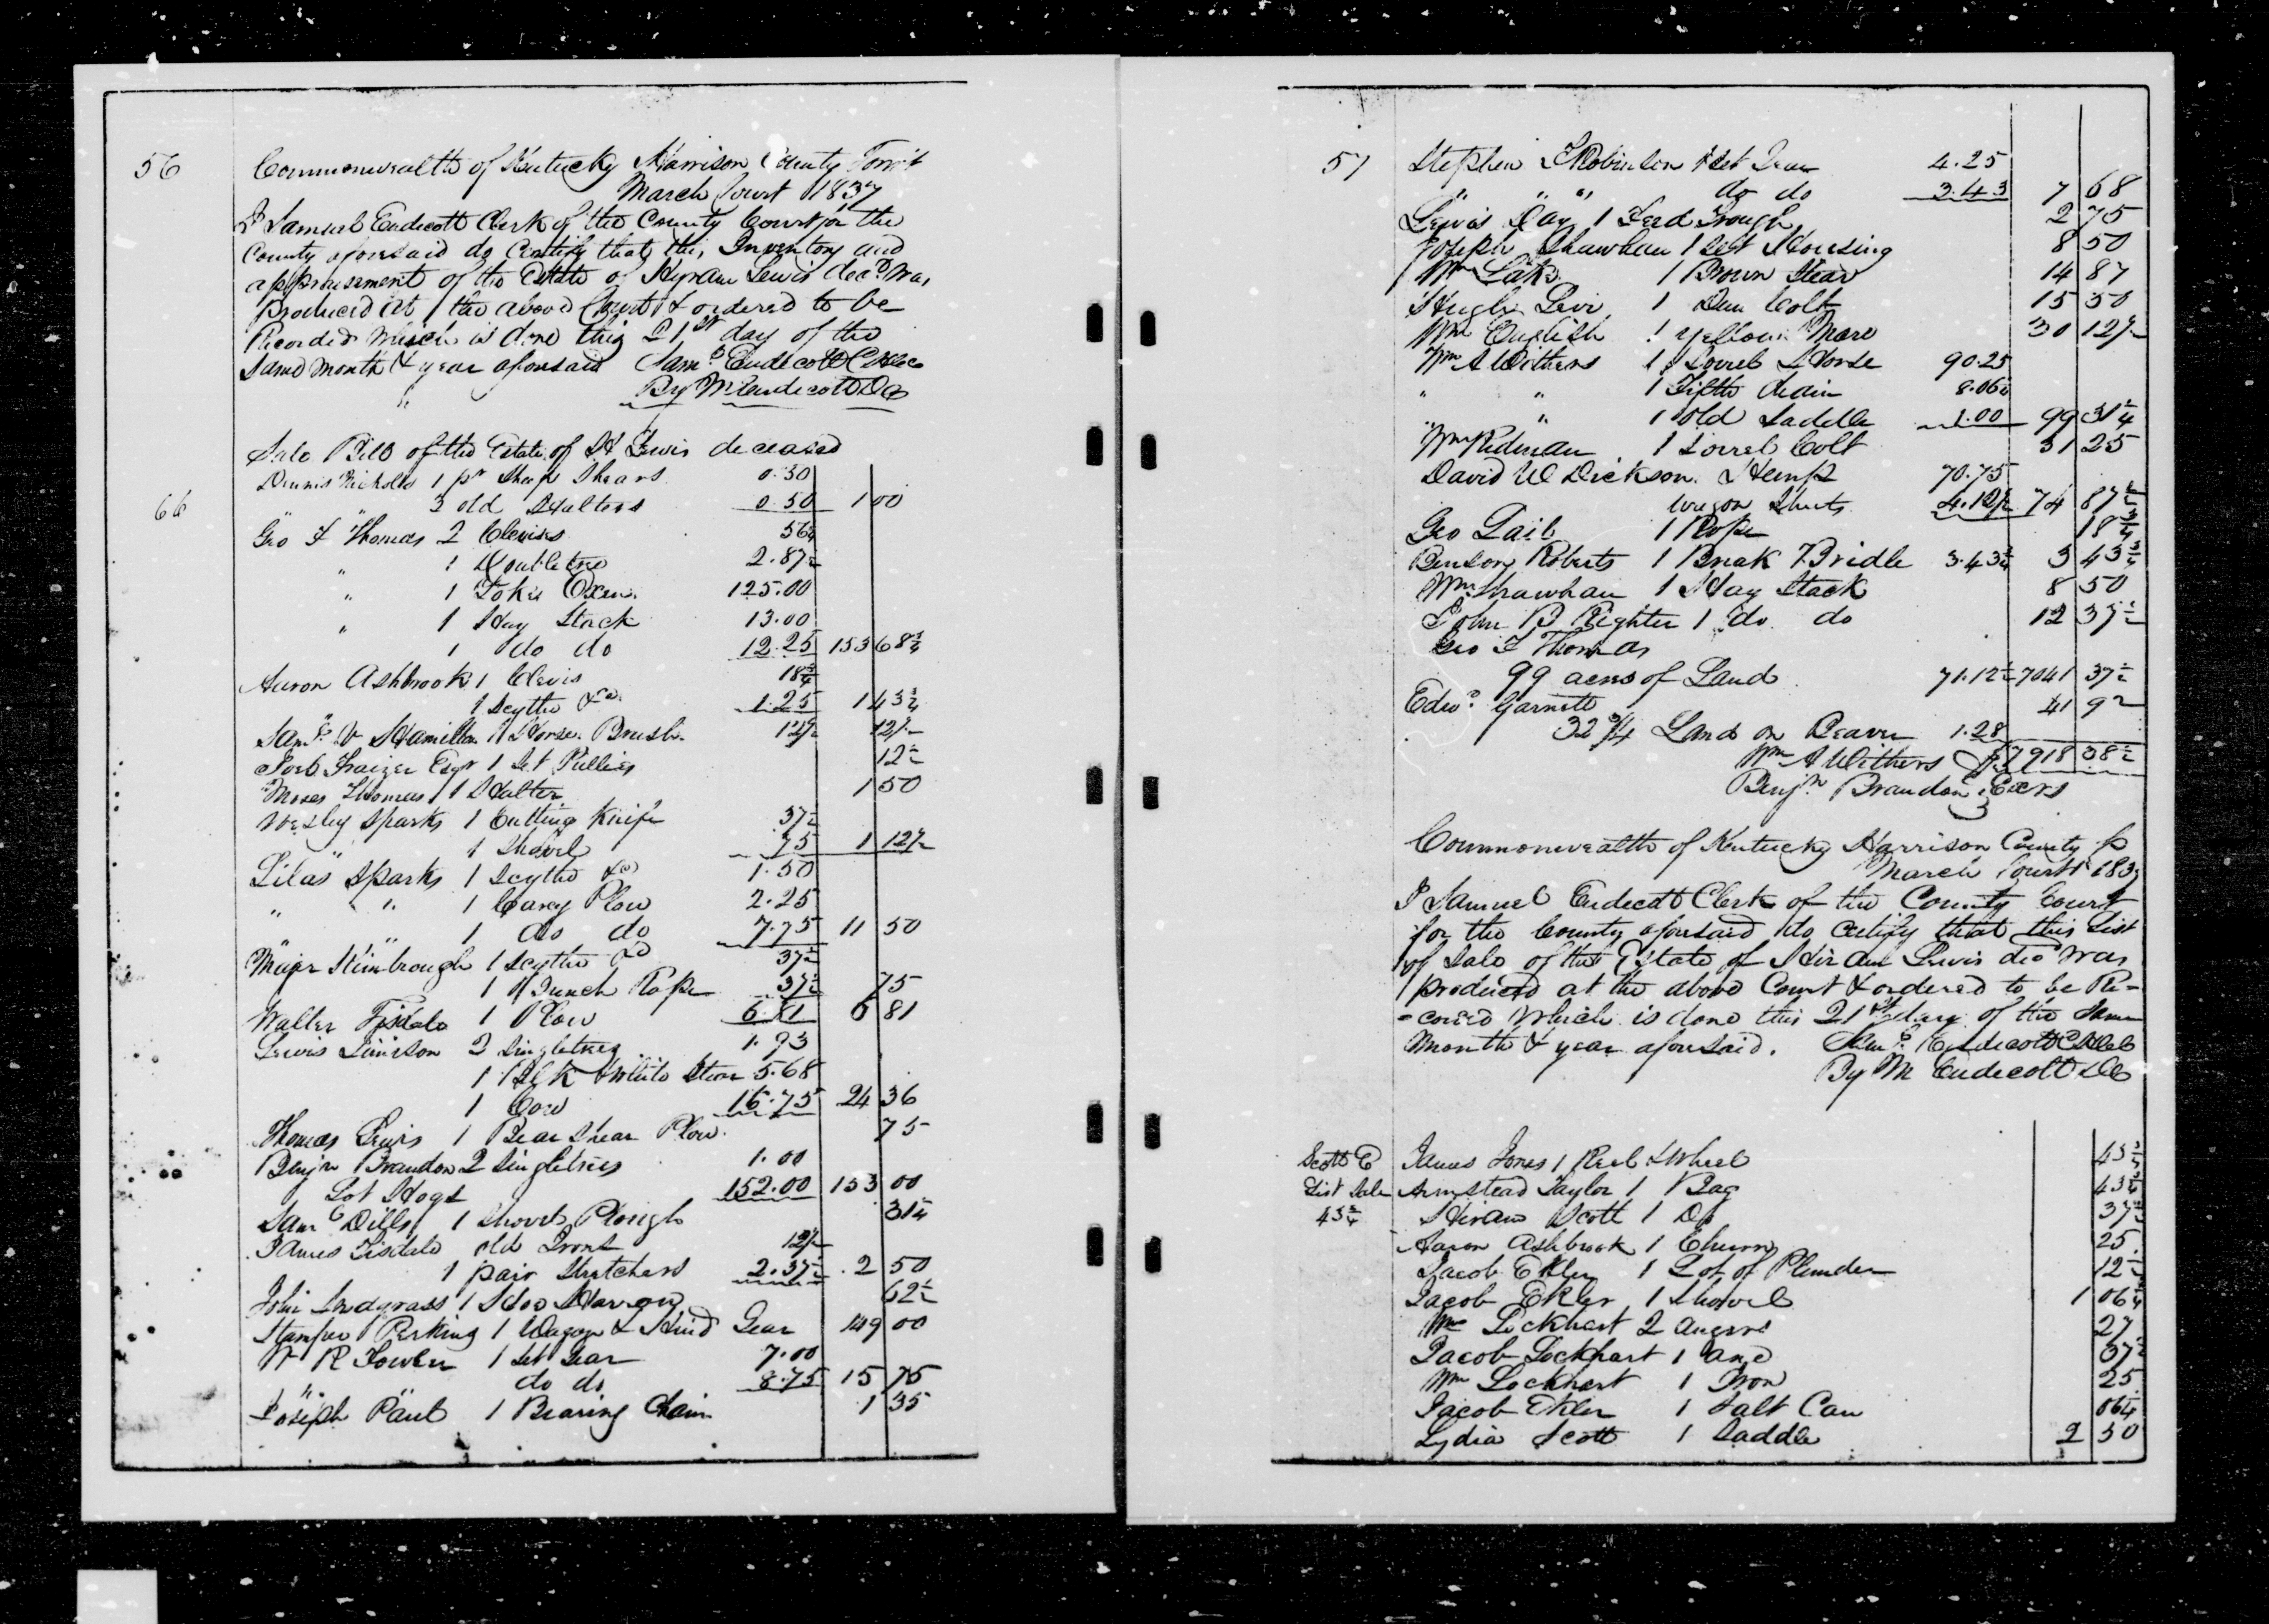 56
Commonwealth of Kentucky Harrison County
March Court 1837
I Samuel Endecott Clerk of the County Court for the
County aforesaid do Certify that this Inventory and
appraisement of the Estate of Hyram Lewis decd was
produced at the above Court & ordered to be
Recorded which is done this 21st day of the
Same month & year aforesaid Saml Endecott
By M Endecott DC
Sale Bill of the Estate of H Lewis deceased
66
Dennis Nicholds 1 pr Sheep Shears 0.50
" 3 old Halters 0.50 1 00
Geo F Thomas 2 Clevises 56¼
" 1 Doubletree 2.87½
" 1 Yoke Oxen 125.00
" 1 Hay Stack 13.00
1 do do 12.25 153 68¾
Aaron Ashbrook 1 Clevis 18¾
1 Scythe &c 1.25 1 43¾
Saml V Hamilton 1 Horse Brush 12½ 12½
Joel Fraizer Esqr 1 Set Pullies 12½
Moses Thomas 1 Halter 1 50
Wesley Sparks 1 Cutting Knife 37½
" 1 Shovel 75 1 12½
Silas Sparks 1 Scythe &c 1.50
" " 1 Carey Plow 2.25
" " 1 do do 7.75 11 50
Major Kimbrough 1 Scythe &c 37½
1 Rope 37½ 75
Walter Tisdale 1 Plow 6.81 6 81
Lewis Jimison 2 Singletrees 1.93
1 Blk & White Steer 5.68
1 Cow 16.75 24 36
Thomas Lewis 1 Bear Shear Plow 75
Benjn Brandon 2 Singletrees 1.00
Lot Hogs 152.00 153 00
Saml Dills 1 Shovel Plough 31¼
James Tisdale old Irons 12½
1 pair Stretchers 2.37½ 2 50
John Snodgrass 1 Hoe Harrow 62½
Perking 1 Wagon & Hind Gear 149 00
W R Fowler 1 Set Gear 7.00
" " do do 8.75 15 75
Joseph Paul 1 Bearing Chain 1 35
57
Stephen Robinson 1 Set Gear 4.25
" " " do do 3.43 7 68
Lewis Day 1 Feed Trough 2 75
Joseph Shawhan 1 Set Housing 8 50
Wm Lake 1 Brown Stear 14 87
Hugh Levi 1 Dun Colt 15 50
Wm English 1 Yellow Mare 30 12½
Wm A Withers 1 Sorrel Horse 90.25
" " 1 Fifth Chain 8.06¼
" " 1 Old Saddle 1.00 99 31¼
Wm Redman 1 Sorrel Colt 31 25
David W Dickson Hemp 70.75
Wagon Sheets 4.12½ 74 87½
Geo Lail 1 Rope 18¾
Benson Roberts 1 Break Bridle 3.43¾ 3 43¾
Wm Shawhan 1 Hay Stack 8 50
John B Righter 1 do do 12 37½
Geo F Thomas
99 acres of Land 71.12½ 7041 37½
Edwd Garnett 41 92
32¾ Land on Beaver 1.28
Wm A Withers $7918 38½
Benjn Brandon Exrs
Commonwealth of Kentucky Harrison County
March Court 1837
I Samuel Endecott Clerk of the County Court
for the County aforesaid do certify that this List
of Sale of the Estate of Hiram Lewis decd was
produced at the above Court & ordered to be Re-
=corded which is done this 21st day of the Same
month & year aforesaid. Saml Endecott
By M Endecott DC
Scott E James Jones 1 Reel & Wheel 43¾
List Sale Armstead Taylor 1 Bag 43¾
43¾ Hiram Scott 1 Do 37½
Aaron Ashbrook 1 Churn 25
Jacob Ekler 1 Lot of Plunder 12½
Jacob Ekler 1 Shovel 1 06¼
Wm Lockhart 2 Augers 27
Jacob Lockhart 1 and 37½
Wm Lockhart 1 Iron 25
Jacob Ekler 1 Salt Can 06¼
Lydia Scott 1 Saddle 2 50